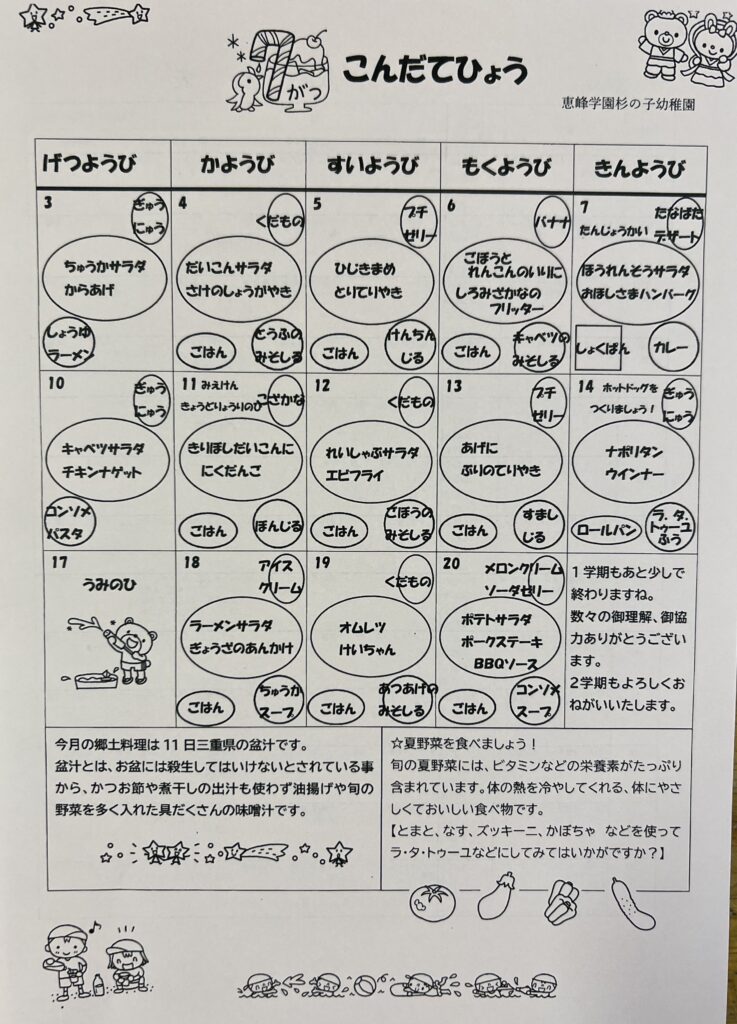 7がつ
こんだてひょう
恵峰学園杉の子幼稚園
げつようび
かようび
すいようび
もくようび
きんようび
3
ぎゅう
にゅう
ちゅうかサラダ
からあげ
しょうゆ
ラーメン
4
くだもの
だいこんサラダ
さけのしょうがやき
ごはん
とうふの
みそしる
5
プチ
ゼリー
ひじきまめ
とりてりやき
ごはん
けんちん
じる
6
バナナ
ごぼうと
れんこんのいりに
しろみざかなの
フリッター
ごはん
キャベツの
みそしる
7
たんじょうかい
たなばた
デザート
ほうれんそうサラダ
おほしさまハンバーグ
しょくぱん
カレー
10
ぎゅう
にゅう
キャベツサラダ
チキンナゲット
コンソメ
パスタ
11 みえけん
きょうどりょうりのひ
こざかな
きりぼしだいこんに
にくだんご
ごはん
ぼんじる
12
くだもの
れいしゃぶサラダ
エビフライ
ごはん
ごぼうの
みそしる
13
プチ
ゼリー
あげに
ぶりのてりやき
ごはん
すまし
じる
14 ホットドッグを
つくりましょう！
ぎゅう
にゅう
ナポリタン
ウインナー
ロールパン
ラ．タ．
トゥーユ
ふう
17
うみのひ
18
アイス
クリーム
ラーメンサラダ
ぎょうざのあんかけ
ごはん
ちゅうか
スープ
19
くだもの
オムレツ
けいちゃん
ごはん
あつあげの
みそしる
20
メロンクリーム
ソーダゼリー
ポテトサラダ
ポークステーキ
BBQソース
ごはん
コンソメ
スープ
1学期もあと少しで
終わりますね。
数々の御理解、御協
力ありがとうござい
ます。
2学期もよろしくお
ねがいいたします。
今月の郷土料理は11日三重県の盆汁です。
盆汁とは、お盆には殺生してはいけないとされている事
から、かつお節や煮干しの出汁も使わず油揚げや旬の
野菜を多く入れた具だくさんの味噌汁です。
☆夏野菜を食べましょう！
旬の夏野菜には、ビタミンなどの栄養素がたっぷり
含まれています。体の熱を冷やしてくれる、体にやさ
しくておいしい食べ物です。
【とまと、なす、ズッキーニ、かぼちゃ などを使って
ラ・タ・トゥーユなどにしてみてはいかがですか？】